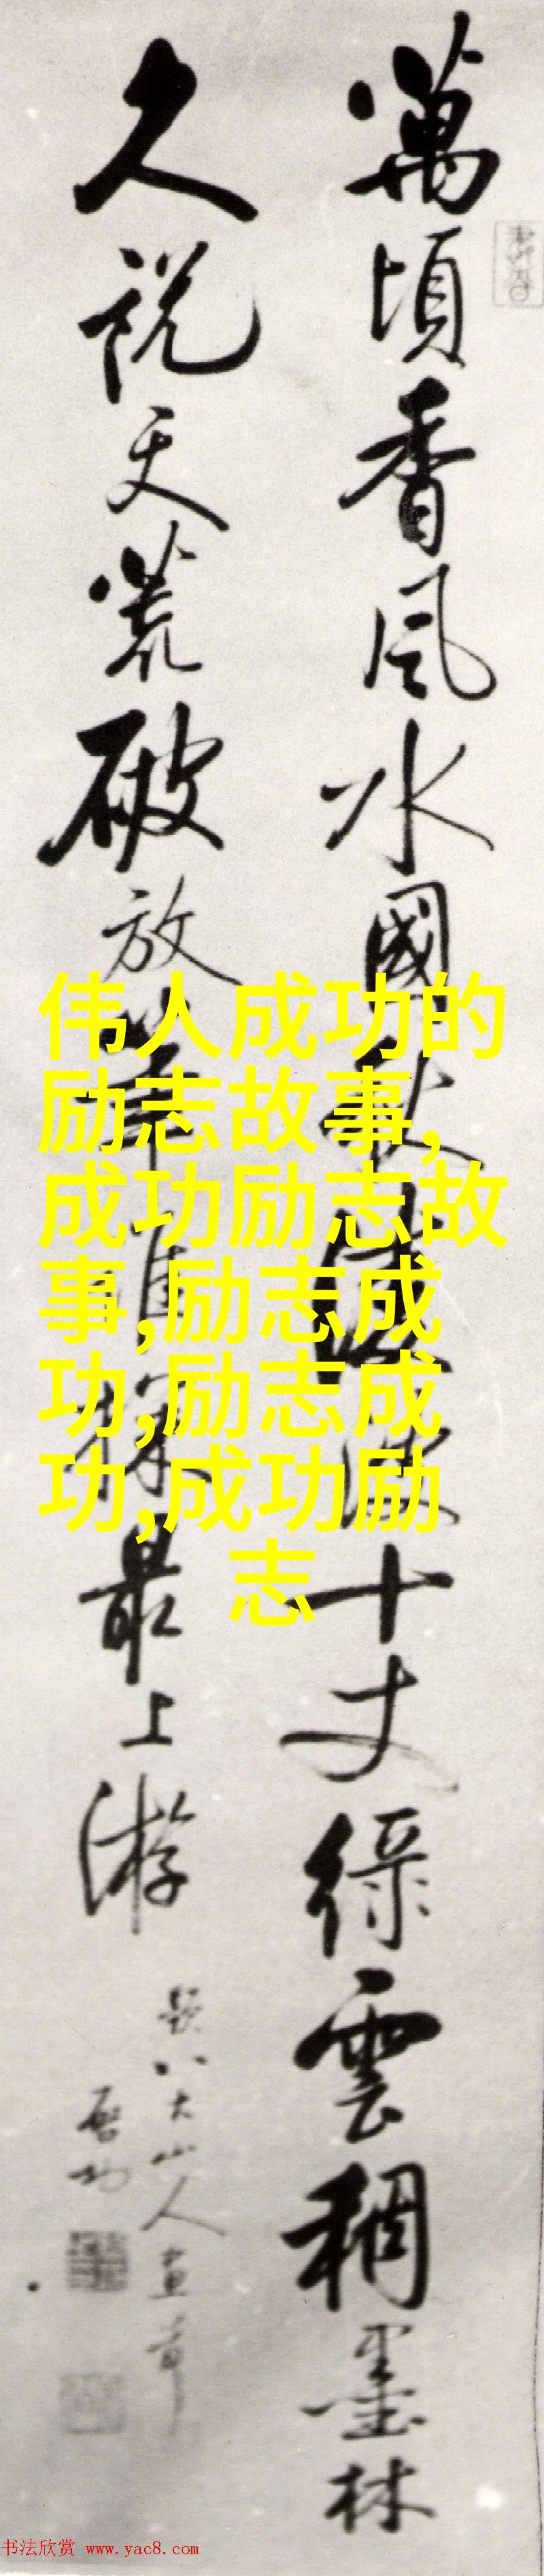 萬頃香風水國秋淩波十丈綠雲稠墨林
久說天荒破放筆誰探最上游
題八大山人畫卷
啓功
伟人成功的
励志故事,
成功励志故
事,励志成
功,励志成
功,成功励
志
书法欣赏 www.yac8.com